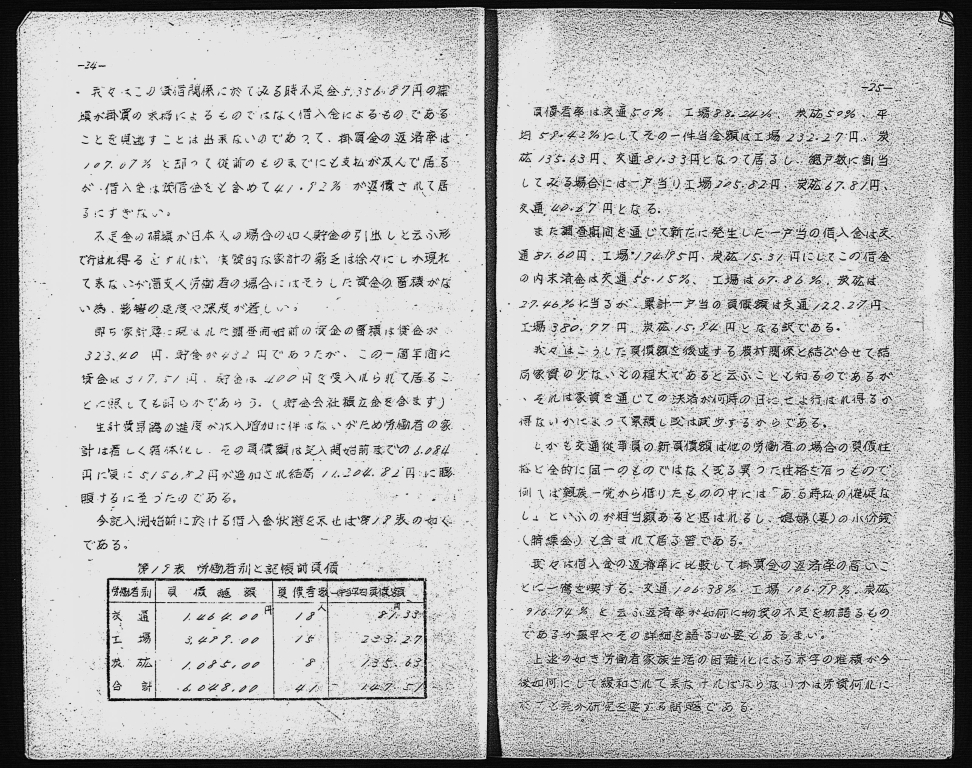 -24-
我々はこの貸借関係に於てみる時不足金5,356.87円の補
填が掛買の求場によるものではなく借入金によるものである
ことを見逃すことは出来ないのであつて、掛買金の返済率は
107.07%と却つて従前のものまでにも支払が及んで居る
が、借入金は貸借金をも含めて41.92%が返償されて居
るにすぎない。
不足金の補填が日本人の場合の如く貯金の引出しと云ふ形
で行はれ得るとすれば、実質的な家計の窮乏は徐々にしか現れ
て来ないが満支人労働者の場合にはそうした資金の蓄積がな
い為、影響の速度や深度が著しい。
即ち家計簿に現はれた調査開始前の資金の蓄積は貸金が
323.40円、貯金が432円であつたが、この一箇年間に
貸金は317.51円、貯金は400円を受入れられて居るこ
とに照しても明らかであらう。(貯金会社積立金を含ます)
生計費昇騰の速度が収入増加に伴はないがため労働者の家
計は著しく弱体化し、その負債額は記入開始前までの6,084
円に更に5,156.82円が追加され結局11,204.82円に膨
脹するに至つたのである。
今記入開始前に於ける借入金状態を示せば第19表の如く
である。
第19表 労働者別と記帳前負債
労働者別 負債総額 負債者数 一件当平均負債額
交通 1,464.00円 18人 81.33円
工場 3,499.00 15 233.27
炭砿 1,085.00 8 135.63
合計 6,048.00 41 147.51
-25-
負債者率は交通50%、工場88.24%、炭砿50%、平
均58.42%にしてその一件当金額は工場232.27円、炭
砿135.63円、交通81.33円となつて居るし、総戸数に割当
してみる場合には一戸当り工場205.82円、炭砿67.81円、
交通40.67円となる。
また調査期間を通じて新たに発生した一戸当の借入金は交
通81.60円、工場174.95円、炭砿15.31円にしてこの借金
の内未済金は交通55.15%、工場は67.86%、炭砿は
27.46%に当るが、累計一戸当の負債額は交通122.27円、
工場380.77円、炭砿15.94円となる訳である。
我々はこうした負債額を後述する農村関係と結び合せて結
局家資の少ないその程大であると云ふことも知るのであるが
、それは家資を通じての決済が何時の日にせよ行はれ得るか
得ないかによつて累積し又は減少するからである。
しかも交通従事員の新負債額は他の労働者の場合の負債性
格と全的に同一のものではなく或る異つた性格を有つもので
例へば親族一党から借りたものの中には「ある時払の催促な
し」といふのが相当額あると思はれるし、媳婦(妻)の小份銭
(臍繰金)も含まれて居る筈である。
我々は借入金の返済率に比較して掛買金の返済率の高いこ
とに一驚を喫する。交通106.38%、工場106.79%、炭砿
916.74%と云ふ返済率が如何に物資の不足を物語るもの
であるか最早やその詳細を語る必要もあるまい。
上述の如き労働者家族生活の困難化による赤字の堆積が今
後如何にして緩和されて来なければならないかは労務何れに